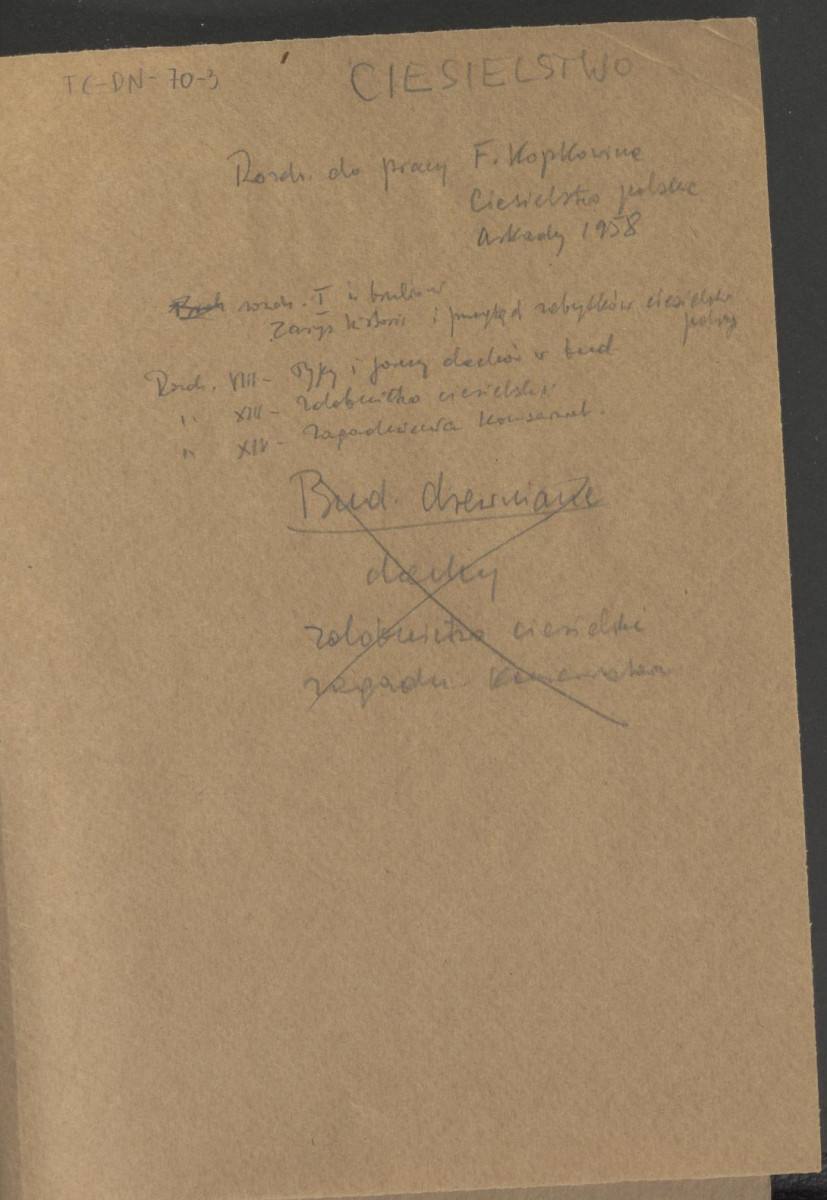 TC-DN-70-3
CIESIELSTWO
Rozdz. do pracy F. Kopkowicza
Ciesielstwo polskie
Arkady 1958
rozdz. I w brulionie
Zarys historii i przegląd zabytków ciesielstwa
Rozdz. VIII - Typy i formy dachów w bud
" XIII - Zdobnictwo ciesielskie
" XIV - Zagadnienia konserwat.
Bud. drewniane
dachy
zdobnictwo ciesielskie
zagadn.